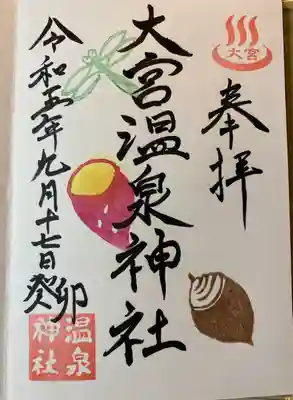 大宮
奉拝
大宮温泉神社
令和五年九月十七日癸卯
温泉
神社